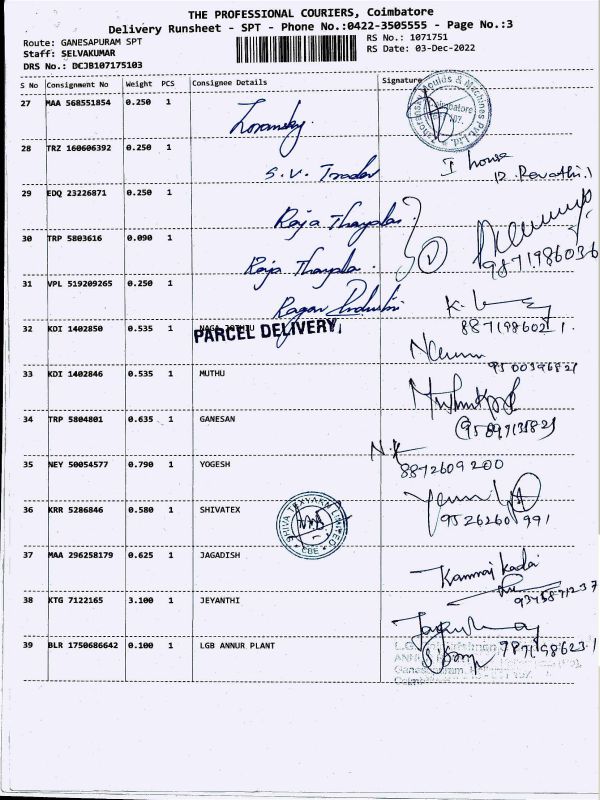 THE PROFESSIONAL COURIERS, Coimbatore
Delivery Runsheet - SPT - Phone No.:0422-3505555 - Page No.:3
Route: GANESAPURAM SPT
RS No.: 1071751
Staff: SELVAKUMAR
RS Date: 03-Dec-2022
DRS No.: DCJB107175103
S No Consignment No Weight PCS Consignee Details Signature
27 MAA 568551854 0.250 1
Coimbatore
28 TRZ 160606392 0.250 1 S.V. Trader I house
D. Revathi
29 EDQ 23226871 0.250 1 Raja Thayalas
30 TRP 5803616 0.090 1 Raja Thayala
9871986036
31 VPL 519209265 0.250 1 Ragav Industri
8871986021.
32 KDI 1402850 0.535 1
PARCEL DELIVERY
33 KDI 1402846 0.535 1 MUTHU
34 TRP 5804801 0.635 1 GANESAN
N.K
35 NEY 50054577 0.790 1 YOGESH 8872609200
36 KRR 5286846 0.580 1 SHIVATEX
SHIVA TEXYARN LIMITED
CBE
9526260991
37 MAA 296258179 0.625 1 JAGADISH
Kamraj Kadai
38 KTG 7122165 3.100 1 JEYANTHI
39 BLR 1750686642 0.100 1 LGB ANNUR PLANT
7871986231